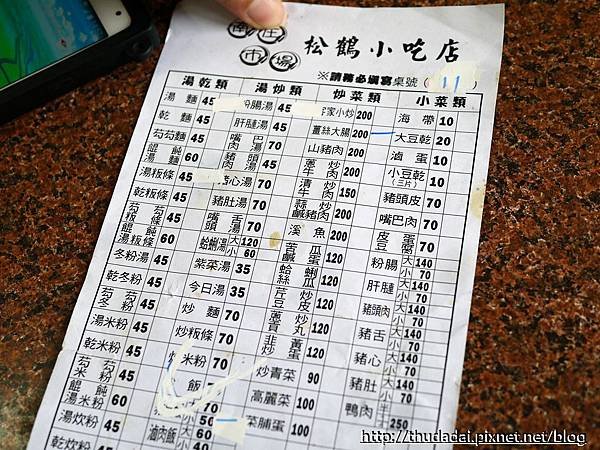 南庄
市場
松鶴小吃店
※請務必填寫桌號(11)
湯乾類 湯炒類 炒菜類 小菜類
湯麵 45
乾麵 45
芶芶麵 45
餛飩麵 60
湯粄條 45
乾粄條 45
芶芶粄條 45
餛飩湯粄條 60
冬粉湯 45
乾冬粉 45
芶芶冬粉 45
湯米粉 45
乾米粉 45
芶芶米粉 45
餛飩湯米粉 60
湯炊粉 45
乾炊粉
粉腸湯 45
肝腱湯
嘴巴肉湯 70
豬頭肉湯 70
豬心湯 70
豬肚湯 70
嘴舌頭湯 70
蛤蜊湯 大 120 小 60
紫菜湯 35
今日湯 35
炒麵 70
炒粄條 70
炒米粉 70
飯 70
滷肉飯 大 50 小 40
客家小炒 200
薑絲大腸 200
山豬肉 200
蔥炒牛肉 200
炒牛肉 150
蒜炒鹹豬肉 200
溪魚 200
苦瓜鹹蛋 120
蛤蜊絲瓜 120
芹炒豆皮 120
薑炒貢丸 120
韭黃炒蛋 120
炒青菜 90
高麗菜 100
菜脯蛋 100
海帶 10
大豆乾 20
滷蛋 10
小豆乾(三片) 10
豬頭皮 70
嘴巴肉 70
皮蛋豆腐 70
粉腸 大 140 小 70
肝腱 大 140 小 70
豬頭肉 大 140 小 70
豬舌 大 140 小 70
豬心 大 140 小 70
豬肚 大 140 小 70
鴨肉
http://thudadai.pixnet.net/blog